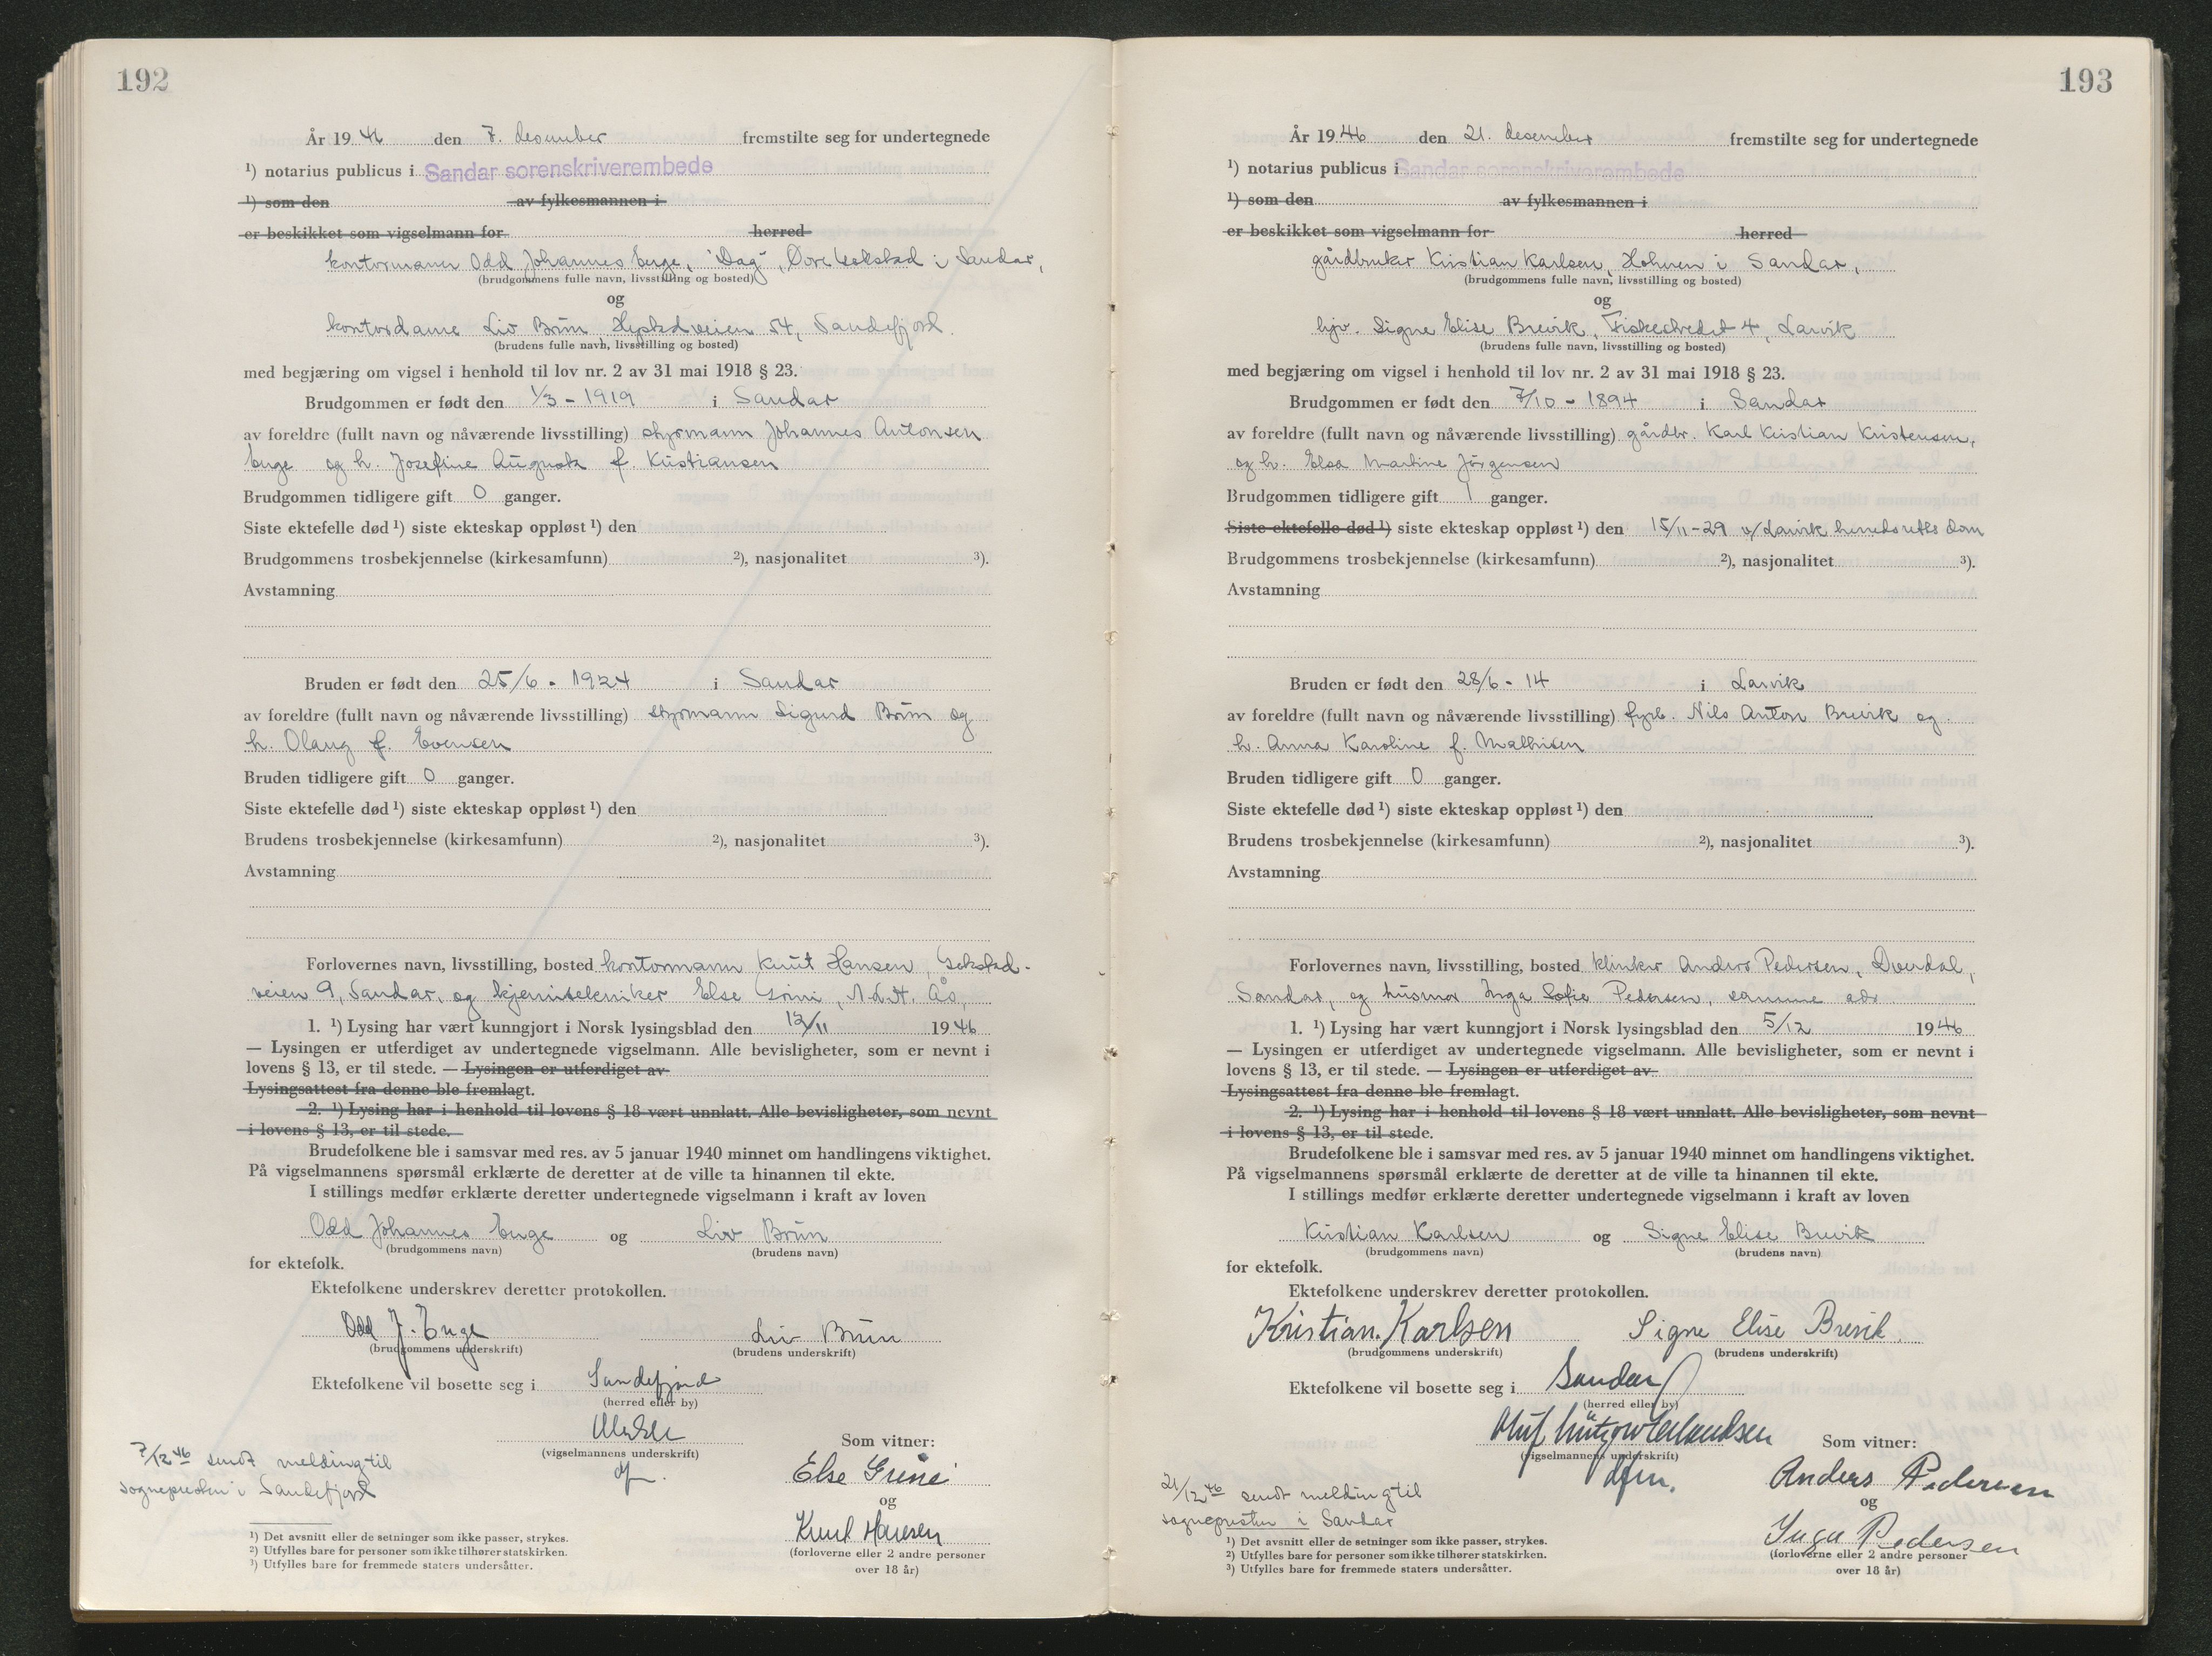 192
År 1946 den 7. desember fremstilte seg for undertegnede
¹) notarius publicus i Sandar sorenskriverembede
¹) som den av fylkesmannen i
er beskikket som vigselmann for herred
kontormann Odd Johannes Enge, "Dag", Øvre Gokstad i Sandar,
(brudgommens fulle navn, livsstilling og bosted)
og
kontordame Liv Brun, Hystadveien 54, Sandefjord.
(brudens fulle navn, livsstilling og bosted)
med begjæring om vigsel i henhold til lov nr. 2 av 31 mai 1918 § 23.
Brudgommen er født den 1/3 - 1919 i Sandar
av foreldre (fullt navn og nåværende livsstilling) styrmann Johannes Antonsen
Enge og h. Josefine Augusta f. Kristiansen
Brudgommen tidligere gift 0 ganger.
Siste ektefelle død ¹) siste ekteskap oppløst ¹) den
Brudgommens trosbekjennelse (kirkesamfunn) ²), nasjonalitet ³).
Avstamning
Bruden er født den 25/6 - 1924 i Sandar
av foreldre (fullt navn og nåværende livsstilling) styrmann Sigurd Brun og
h. Olaug f. Evensen
Bruden tidligere gift 0 ganger.
Siste ektefelle død ¹) siste ekteskap oppløst ¹) den
Brudens trosbekjennelse (kirkesamfunn) ²), nasjonalitet ³).
Avstamning
Forlovernes navn, livsstilling, bosted kontormann Knut Hansen, Gokstad-
veien 9, Sandar, og kjemitekniker Else Grini, N.L.H. Ås,
1. ¹) Lysing har vært kunngjort i Norsk lysingsblad den 12/11 1946
— Lysingen er utferdiget av undertegnede vigselmann. Alle bevisligheter, som er nevnt i
lovens § 13, er til stede. — Lysingen er utferdiget av
Lysingsattest fra denne ble fremlagt.
2. ¹) Lysing har i henhold til lovens § 18 vært unnlatt. Alle bevisligheter, som nevnt
i lovens § 13, er til stede.
Brudefolkene ble i samsvar med res. av 5 januar 1940 minnet om handlingens viktighet.
På vigselmannens spørsmål erklærte de deretter at de ville ta hinannen til ekte.
I stillings medfør erklærte deretter undertegnede vigselmann i kraft av loven
Odd Johannes Enge og Liv Brun
(brudgommens navn) (brudens navn)
for ektefolk.
Ektefolkene underskrev deretter protokollen.
Odd J. Enge Liv Brun
(brudgommens underskrift) (brudens underskrift)
Ektefolkene vil bosette seg i Sandefjord
(herred eller by)
(vigselmannens underskrift) Som vitner:
7/12 46 sendt melding til
sognepresten i Sandefjord
Else Grini
og
Knut Hansen
(forloverne eller 2 andre personer
over 18 år)
¹) Det avsnitt eller de setninger som ikke passer, strykes.
²) Utfylles bare for personer som ikke tilhører statskirken.
³) Utfylles bare for fremmede staters undersåtter.
193
År 1946 den 21. desember fremstilte seg for undertegnede
¹) notarius publicus i Sandar sorenskriverembede
¹) som den av fylkesmannen i
er beskikket som vigselmann for herred
gårdbruker Kristian Karlsen, Holmen i Sandar,
(brudgommens fulle navn, livsstilling og bosted)
og
hjv. Signe Elise Brevik, Fiskestredet 4, Larvik
(brudens fulle navn, livsstilling og bosted)
med begjæring om vigsel i henhold til lov nr. 2 av 31 mai 1918 § 23.
Brudgommen er født den 7/10 - 1894 i Sandar
av foreldre (fullt navn og nåværende livsstilling) gårdbr. Karl Kristian Kristensen,
og h. Elsa Martine Jørgensen
Brudgommen tidligere gift 1 ganger.
Siste ektefelle død ¹) siste ekteskap oppløst ¹) den 15/11-29 v/Larvik herredsretts dom
Brudgommens trosbekjennelse (kirkesamfunn) ²), nasjonalitet ³).
Avstamning
Bruden er født den 28/6 - 14 i Larvik
av foreldre (fullt navn og nåværende livsstilling) fyrb. Nils Anton Brevik og
h. Anna Karoline f. Mathisen
Bruden tidligere gift 0 ganger.
Siste ektefelle død ¹) siste ekteskap oppløst ¹) den
Brudens trosbekjennelse (kirkesamfunn) ²), nasjonalitet ³).
Avstamning
Forlovernes navn, livsstilling, bosted klinker Anders Pedersen, Dverdal,
Sandar, og husmor Inga Sofie Pedersen, samme adr.
1. ¹) Lysing har vært kunngjort i Norsk lysingsblad den 5/12 1946
— Lysingen er utferdiget av undertegnede vigselmann. Alle bevisligheter, som er nevnt i
lovens § 13, er til stede. — Lysingen er utferdiget av
Lysingsattest fra denne ble fremlagt.
2. ¹) Lysing har i henhold til lovens § 18 vært unnlatt. Alle bevisligheter, som nevnt
i lovens § 13, er til stede.
Brudefolkene ble i samsvar med res. av 5 januar 1940 minnet om handlingens viktighet.
På vigselmannens spørsmål erklærte de deretter at de ville ta hinannen til ekte.
I stillings medfør erklærte deretter undertegnede vigselmann i kraft av loven
Kristian Karlsen og Signe Elise Brevik
(brudgommens navn) (brudens navn)
for ektefolk.
Ektefolkene underskrev deretter protokollen.
Kristian Karlsen Signe Elise Brevik.
(brudgommens underskrift) (brudens underskrift)
Ektefolkene vil bosette seg i Sandar
(herred eller by)
Oluf Lützow Erlandsen
(vigselmannens underskrift) Som vitner:
dfm.
21/12 46 sendt melding til
sognepresten i Sandar
Anders Pedersen
og
Inga Pedersen
(forloverne eller 2 andre personer
over 18 år)
¹) Det avsnitt eller de setninger som ikke passer, strykes.
²) Utfylles bare for personer som ikke tilhører statskirken.
³) Utfylles bare for fremmede staters undersåtter.